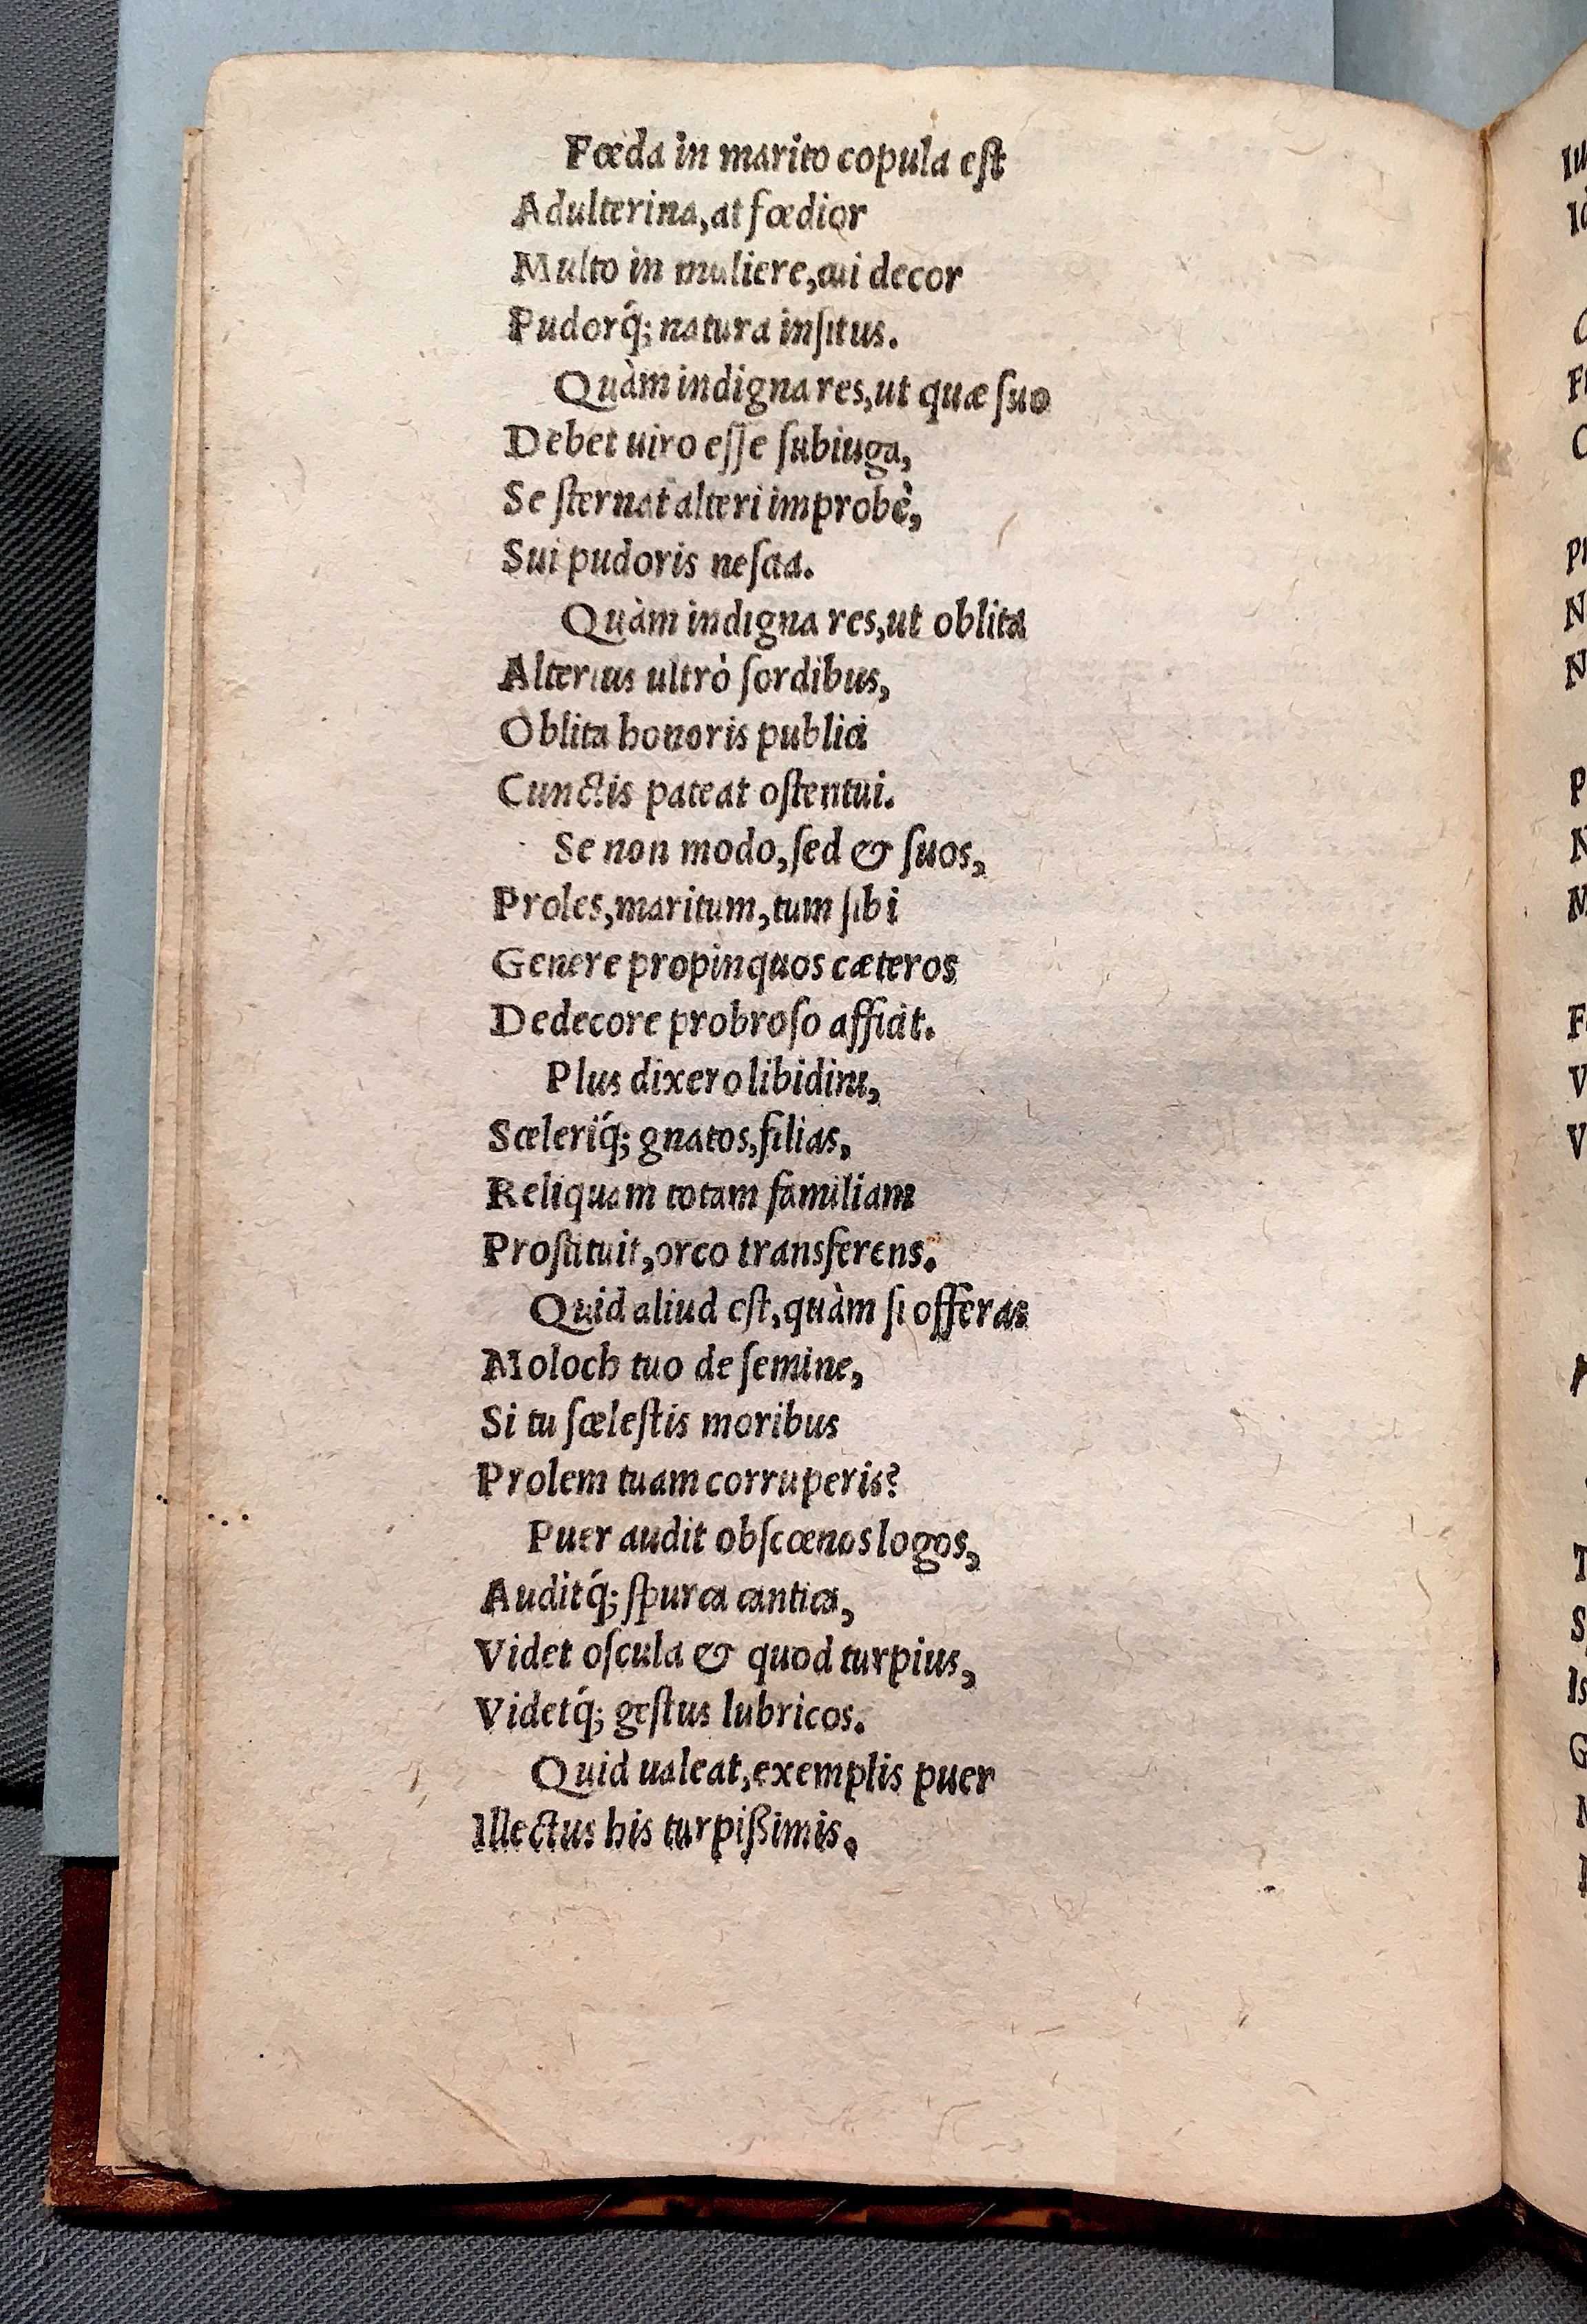 Fœda in marito copula eſt
Adulterina,at fœdior
Multo in muliere,cui decor
Pudorq́; natura inſitus.
Quàm indigna res,ut quæ ſuo
Debet uiro eſſe ſubiuga,
Se ſternat alteri improbè,
Sui pudoris neſcia.
Quàm indigna res,ut oblita
Alterius ultrò ſordibus,
Oblita honoris publici
Cunctis pateat oſtentui.
Se non modo,ſed & ſuos,
Proles,maritum,tum ſibi
Genere propinquos cæteros
Dedecore probroſo afficit.
Plus dixero libidini,
Sceleriq́; gnatos,filias,
Reliquam totam familiam
Proſtituit,orco transferens.
Quid aliud eſt,quàm ſi offeras
Moloch tuo de ſemine,
Si tu ſceleſtis moribus
Prolem tuam corruperis?
Puer audit obſcœnos logos,
Auditq́; ſpurca cantica,
Videt oſcula & quod turpius,
Videtq́; geſtus lubricos.
Quid ualeat,exemplis puer
Illectus his turpißimis.